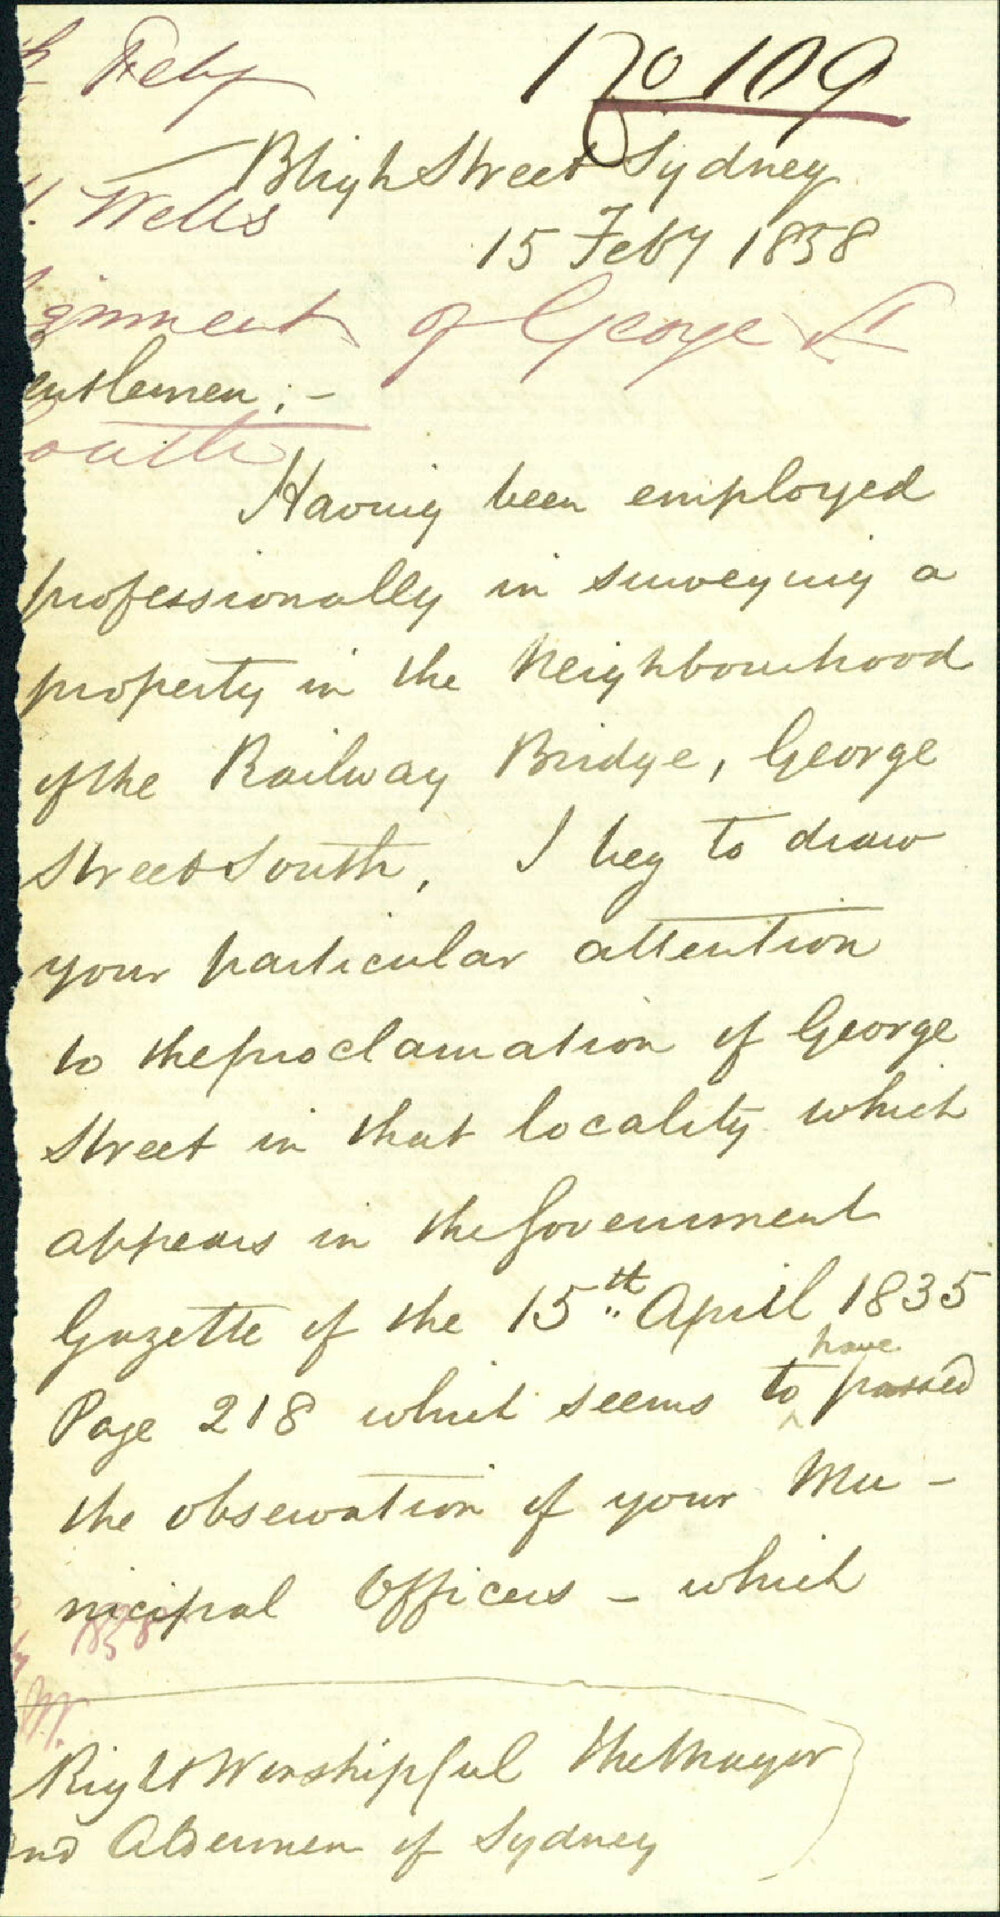 Feby
No 109
Bligh Street Sydney
W. Wells
15 Feby 1858
gnment of George St
entlemen; -
outh
Having been employed
professionally in surveying a
property in the Neighbourhood
of the Railway Bridge, George
Street South, I beg to draw
your particular attention
to the proclamation of George
Street in that locality which
appears in the Government
Gazette of the 15th April 1835
have
Page 218 which seems to passed
the observation of your Mu-
nicipal Officers - which
1858
W.
Right Worshipful the Mayor
and Aldermen of Sydney